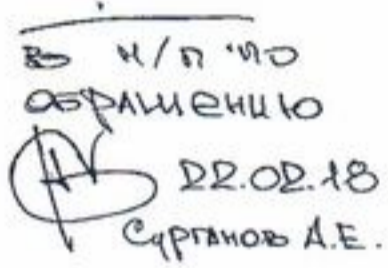 В Н/П ПО
ОБРАЩЕНИЮ
22.02.18
Сурганов А.Е.